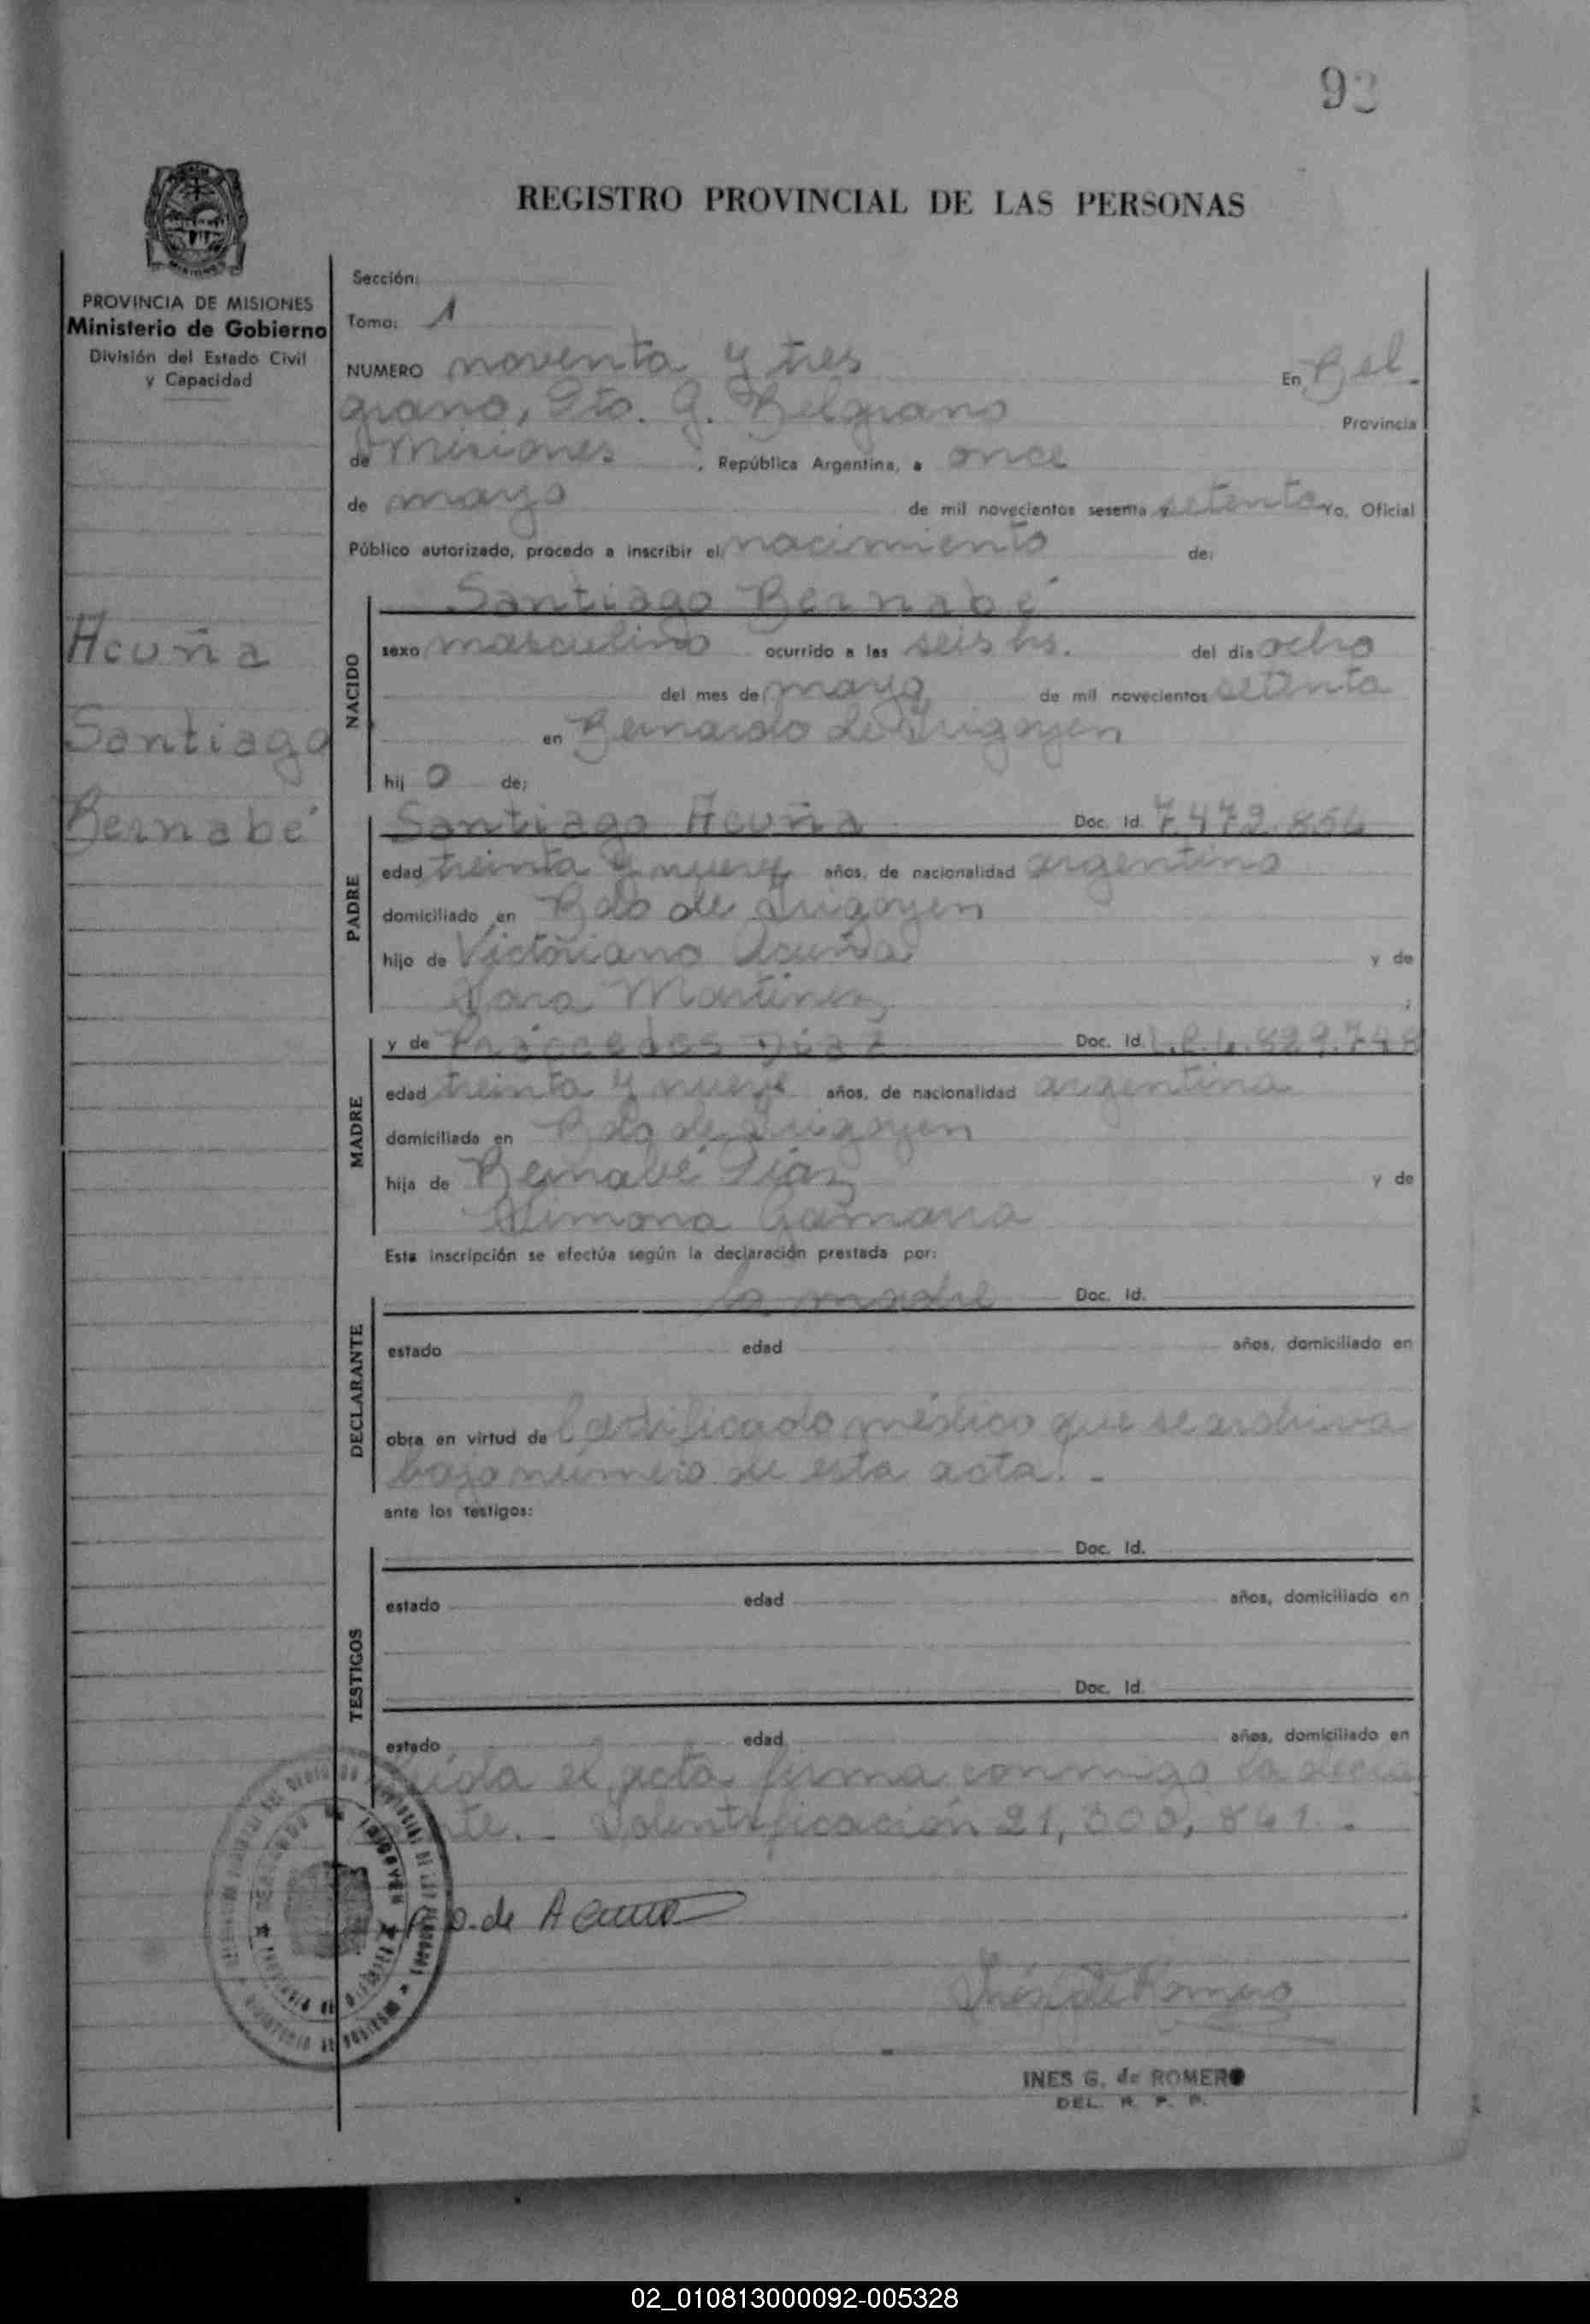 92
REGISTRO PROVINCIAL DE LAS PERSONAS
PROVINCIA DE MISIONES
Ministerio de Gobierno
División del Estado Civil
y Capacidad
Acuña
Santiago
Bernabé
Sección:
Tomo: 1
NUMERO noventa y tres En Bel.
grano, Dto. G. Belgrano Provincia
de Misiones, República Argentina, a once
de mayo de mil novecientos sesenta y setenta Yo, Oficial
Público autorizado, procedo a inscribir el nacimiento de:
NACIDO
Santiago Bernabé
sexo masculino ocurrido a las seis hs. del día ocho
del mes de mayo de mil novecientos setenta
en Bernardo de Irigoyen
hij o de:
PADRE
Santiago Acuña Doc. Id. 7.472.856
edad treinta y nueve años, de nacionalidad argentino
domiciliado en Bdo de Irigoyen
hijo de Victoriano Acuña y de
Sara Martinez ;
MADRE
y de Díaz Doc. Id.
edad treinta y nueve años, de nacionalidad argentina
domiciliada en Bdo de Irigoyen
hija de Bernabé Díaz y de
Simona Gamarra
Esta inscripción se efectúa según la declaración prestada por:
DECLARANTE
la madre Doc. Id.
estado edad años, domiciliado en
obra en virtud de Certificado médico que se archiva
bajo número de esta acta. -
ante los testigos:
TESTIGOS
Doc. Id.
estado edad años, domiciliado en
Doc. Id.
estado edad años, domiciliado en
Leída el acta firma conmigo la decla
rante. - 21,300,841. -
P. D. de Acuña
Inés G de Romero
INES G. de ROMERO
DEL. R. P. P.
02_010813000092-005328